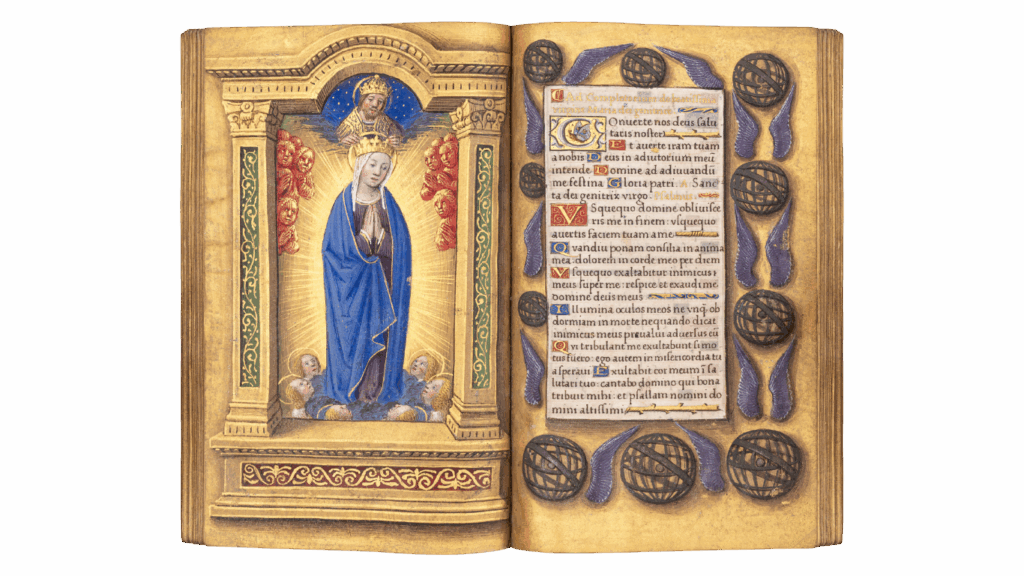 Onuerte nos deus salu
taris noster
Et auerte iram tuam
a nobis Deus in adiutorium meū
intende Domine ad adiuuandū
me festina Gloria patri. Sanc
ta dei genitrix virgo
VSquequo domine obliuisce
ris me in finem: vsquequo
auertis faciem tuam a me
Quandiu ponam consilia in anima
mea: dolorem in corde meo per diem
Vsquequo exaltabitur inimicus
meus super me: respice et exaudi me
domine deus meus
Illumina oculos meos ne vnq̄ ob
dormiam in morte nequando dicat
inimicus meus preualui aduersus eū
Qui tribulant me exultabunt si mo
tus fuero: ego autem in misericordia tu
a speraui Exultabit cor meum ī sa
lutari tuo: cantabo domino qui bona
tribuit mihi: et psallam nomini do
mini altissimi